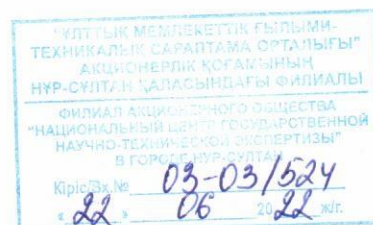 "ҰЛТТЫҚ МЕМЛЕКЕТТІК ҒЫЛЫМИ-
ТЕХНИКАЛЫҚ САРАПТАМА ОРТАЛЫҒЫ"
АКЦИОНЕРЛІК ҚОҒАМЫНЫҢ
НҰР-СҰЛТАН ҚАЛАСЫНДАҒЫ ФИЛИАЛЫ
ФИЛИАЛ АКЦИОНЕРНОГО ОБЩЕСТВА
"НАЦИОНАЛЬНЫЙ ЦЕНТР ГОСУДАРСТВЕННОЙ
НАУЧНО-ТЕХНИЧЕСКОЙ ЭКСПЕРТИЗЫ"
В ГОРОДЕ НУР-СУЛТАН
Кіріс/Вх.№ 03-03/524
« 22 » 06 2022 ж/г.